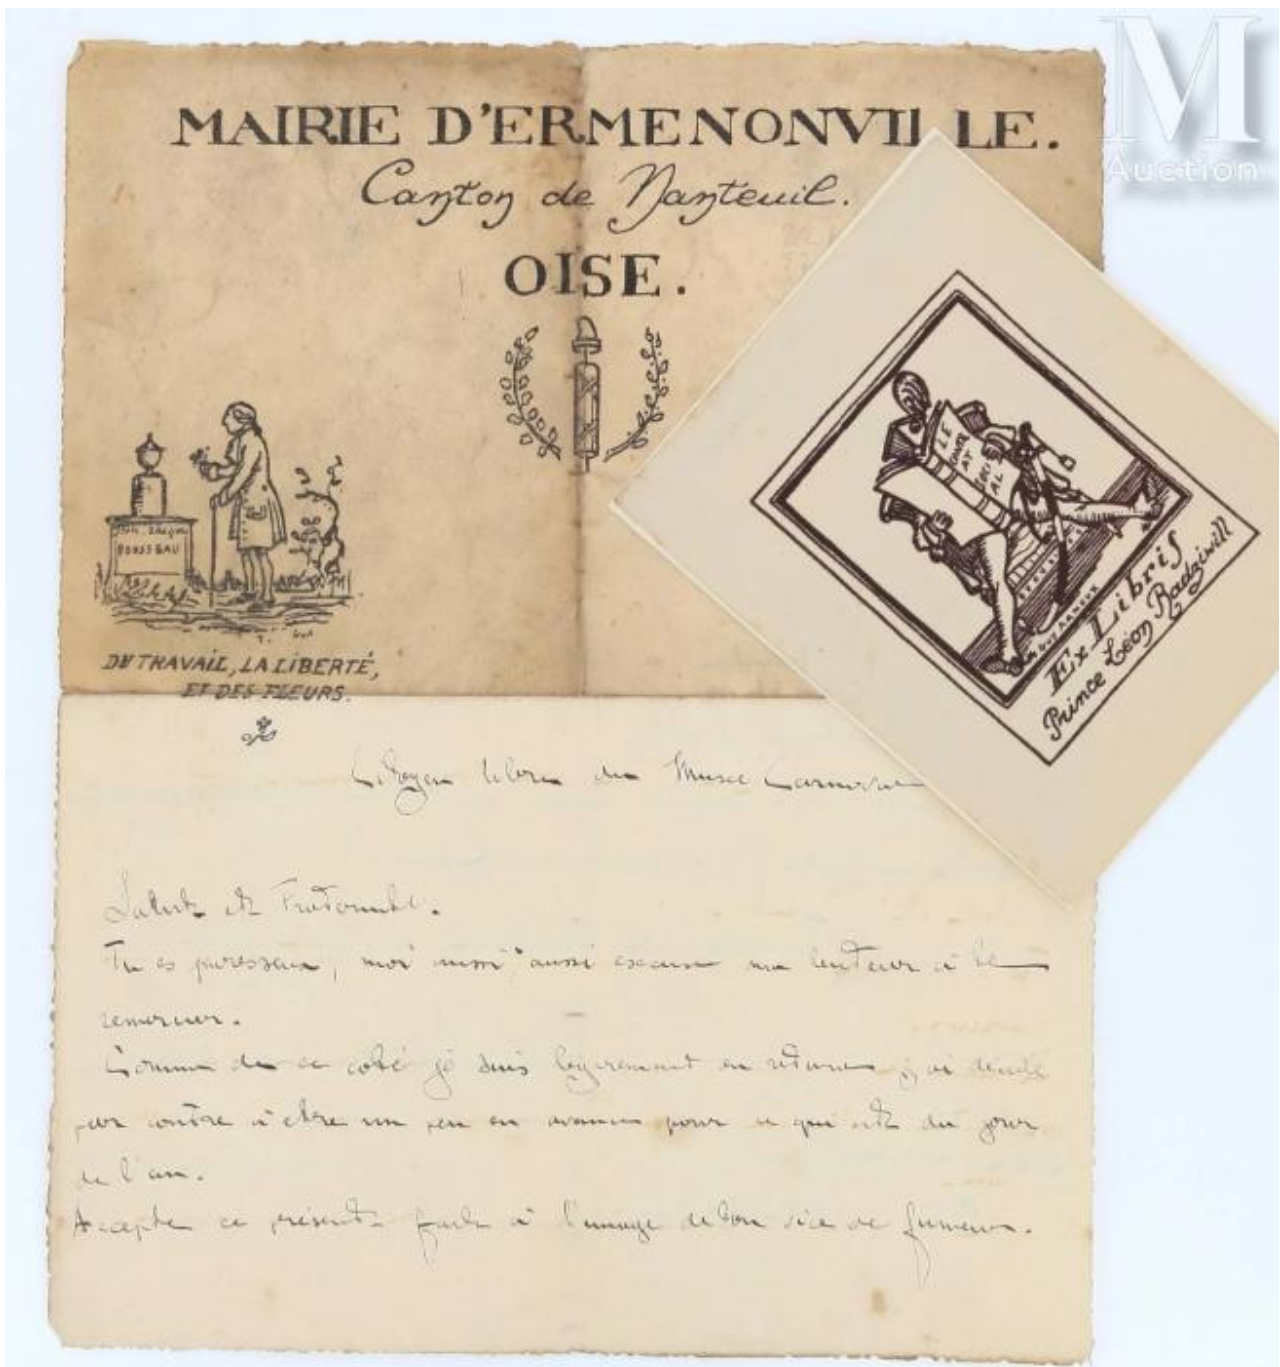 M
Auction
MAIRIE D'ERMENONVILLE.
Canton de Nanteuil.
OISE.
JEAN JACQUES
ROUSSEAU
DU TRAVAIL, LA LIBERTÉ,
ET DES FLEURS.
LE
CONTR
AT
SOCI
AL
GUY ARNOUX
Ex Libris
Prince Léon Radziwill
Citoyen libre du Musée Carnavalet
Salut et Fraternité.
Tu es paresseux, moi aussi aussi excuse ma lenteur à te
remercier.
Comme de ce coté je suis légèrement en retard j'ai décidé
par contre à être un peu en avance pour ce qui est du jour
de l'an.
Accepte ce présent fait à l'image de ton vice de fumeur.